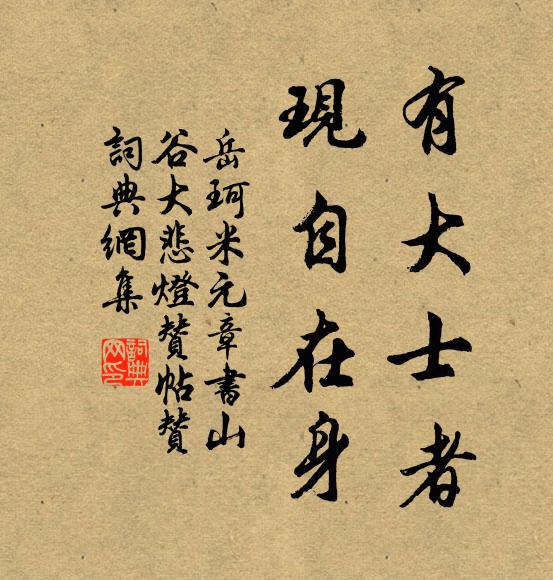 有大士者
現自在身
岳珂米元章書山
谷大悲燈贊帖贊
詞典網集